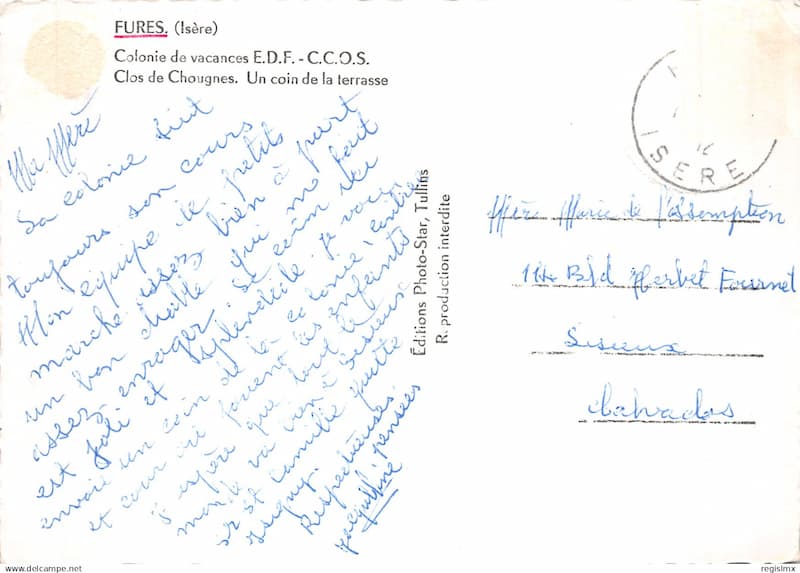 FURES. (Isère)
Colonie de vacances E.D.F. - C.C.O.S.
Clos de Chougnes. Un coin de la terrasse
Ma Mère
La colonie suit
toujours son cours
Mon équipe de petits
marche assez bien à part
un bon diable qui me fait
assez enrager. Le coin ici
est joli et splendide. je vous
envoie un coin de la colonie, entrée
et cour où jouent les enfants
J'espère que tout le
monde va bien à Lisieux
et St Camille
Isigny.
Respectueuses
pensées
Jacqueline
Éditions Photo-Star, Tullins
R. production interdite
ISERE
Mère Marie de l'Assomption
Bld Herbet Fournet
Lisieux
Calvados
delcampe.net
regislmx